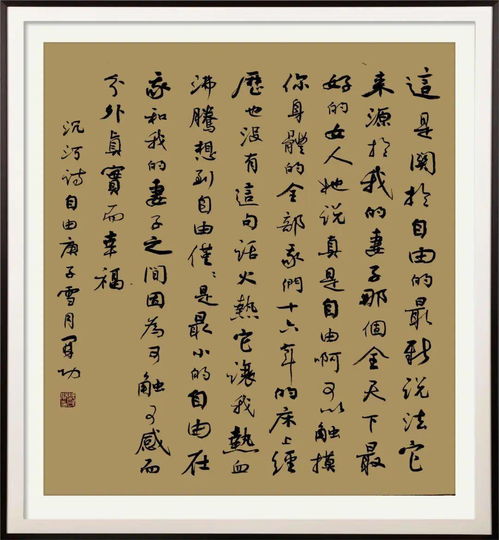 這是關於自由的最新说法它
来源於我的妻子那個全天下最
好的女人她说真是自由啊可以触摸
你身體的全部我們十六年的床上經
歷也没有這句话火熱它讓我熱血
沸騰想到自由僅〻是最小的自由在
我和我的妻子之间因為可触可感而
分外真實而幸福
沉河诗自由庚子雪月